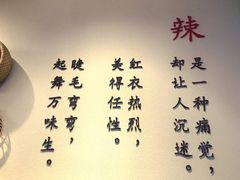 辣
是一种痛觉，
却让人沉迷。
红衣热烈，
美得任性。
睫毛弯弯，
起舞万味生。